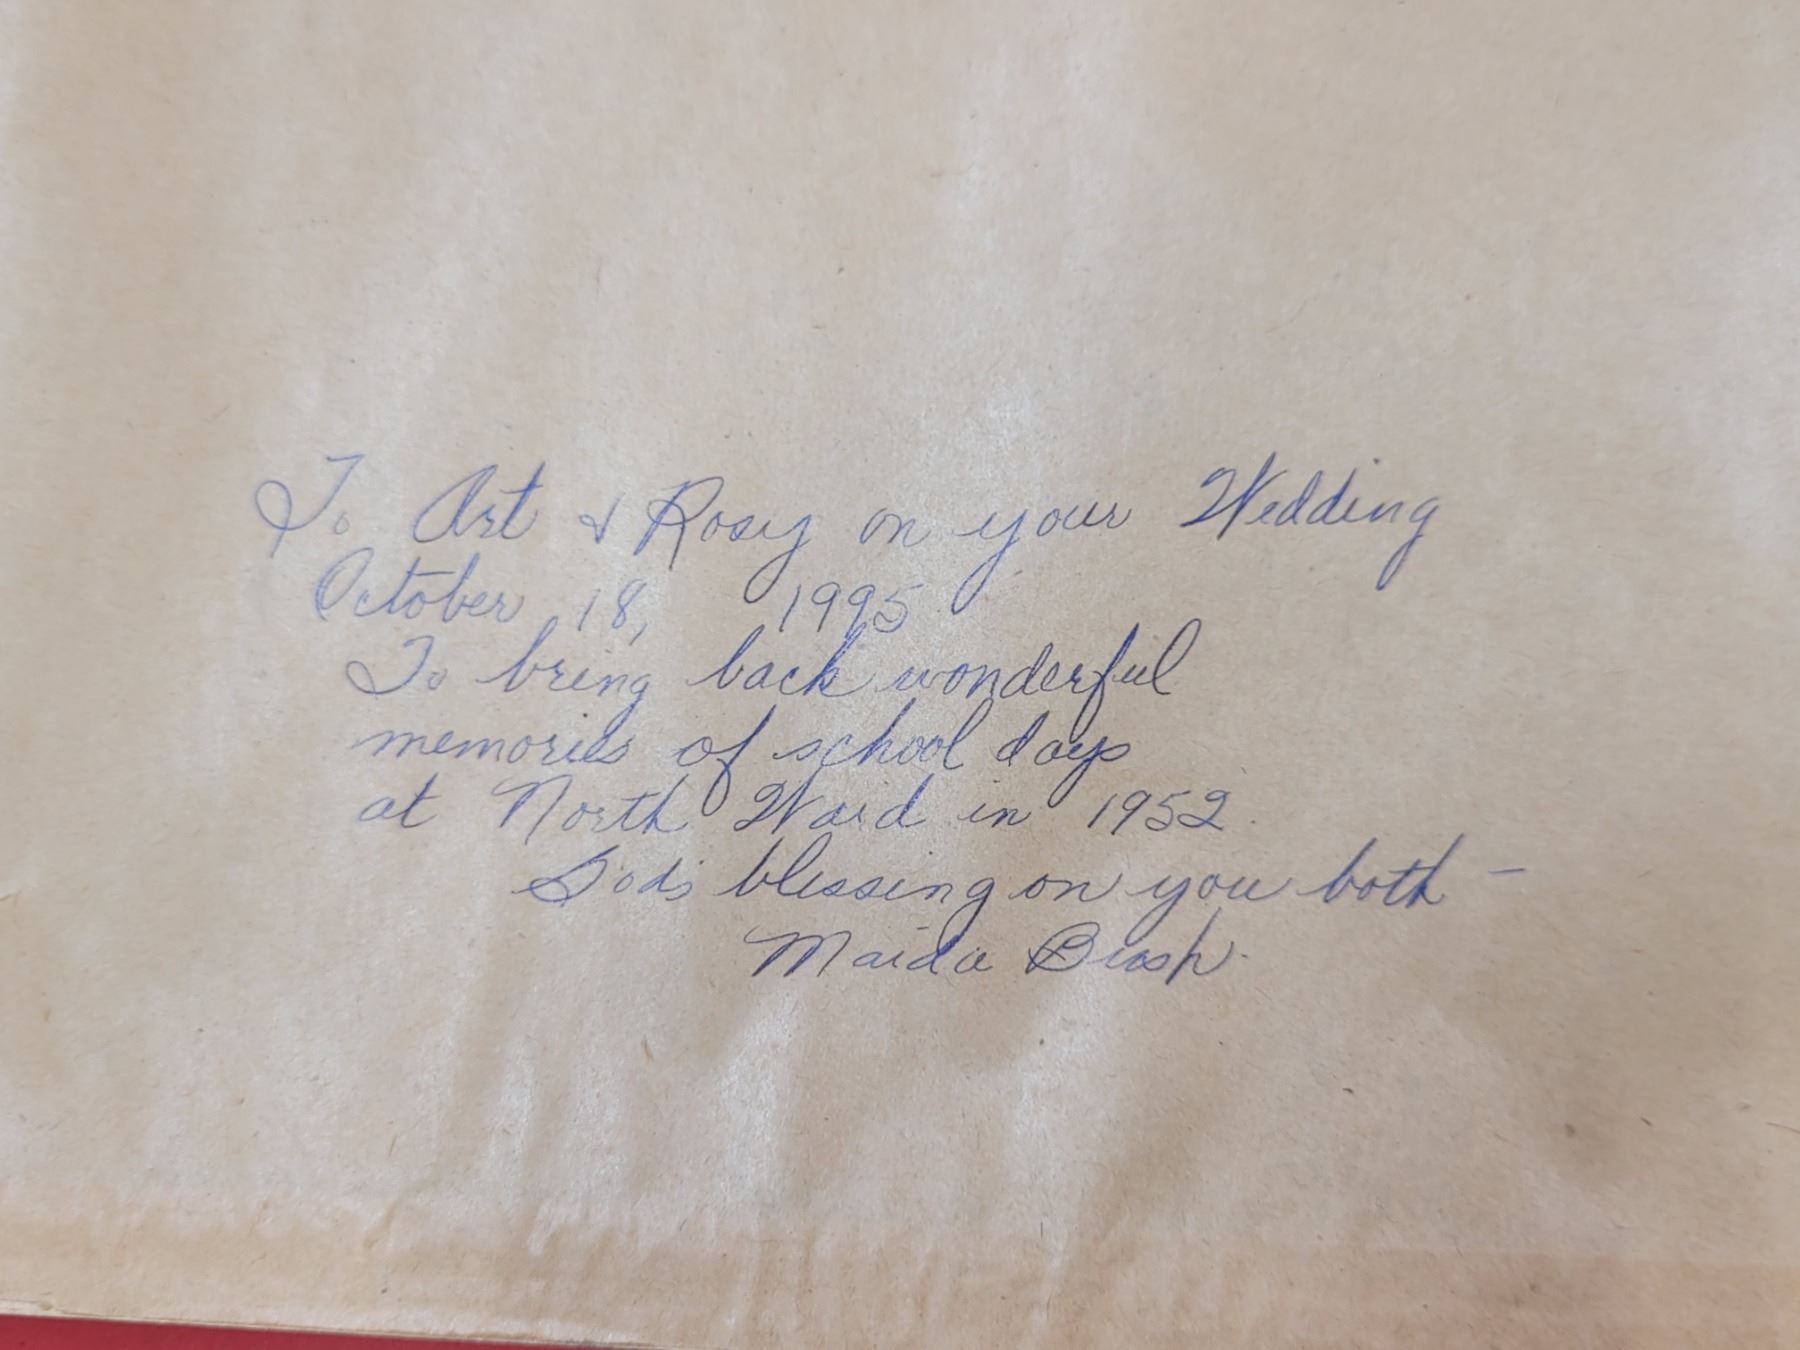 To Art & Rosy on your Wedding
October 18, 1995
To bring back wonderful
memories of school days
at North Ward in 1952.
God's blessing on you both –
Maida